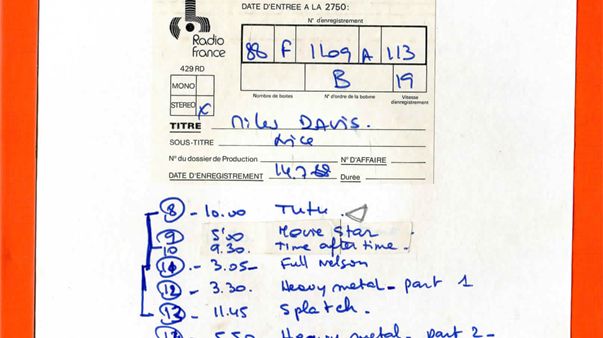 DATE D'ENTREE A LA 2750:
N° d'enregistrement
Radio
France
88 F 1109 A 113
B 19
429 RD
Nombre de boites N° d'ordre de la bobine Vitesse d'enregistrement
MONO
STEREO x
TITRE Miles DAVIS.
SOUS-TITRE Nice
N° du dossier de Production N° D'AFFAIRE
DATE D'ENREGISTREMENT 14.7.88 Durée
8 - 10.00 TUTU.
9 5'00 Movie Star
10 9.30. Time after time.
11 - 3.05 - Full Nelson
12 - 3.30. Heavy metal - part 1
13 - 11.45 Splatch.
5.50 Heavy metal - part 2 -